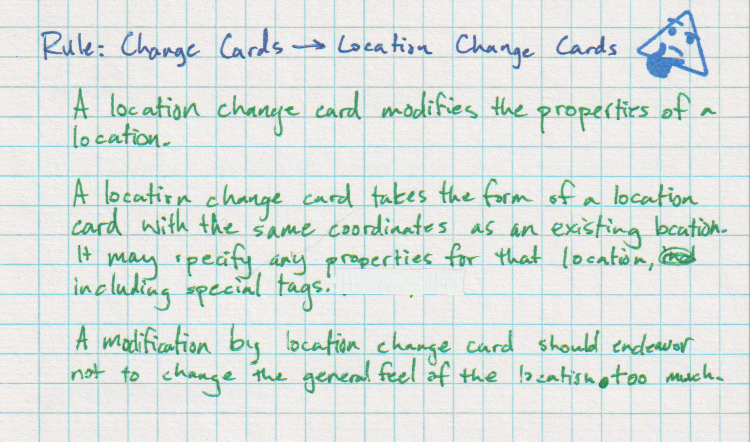 Rule: Change Cards → Location Change Cards
A location change card modifies the properties of a
location.
A location change card takes the form of a location
card with the same coordinates as an existing location.
It may specify any properties for that location,
including special tags.
A modification by location change card should endeavor
not to change the general feel of the location too much.